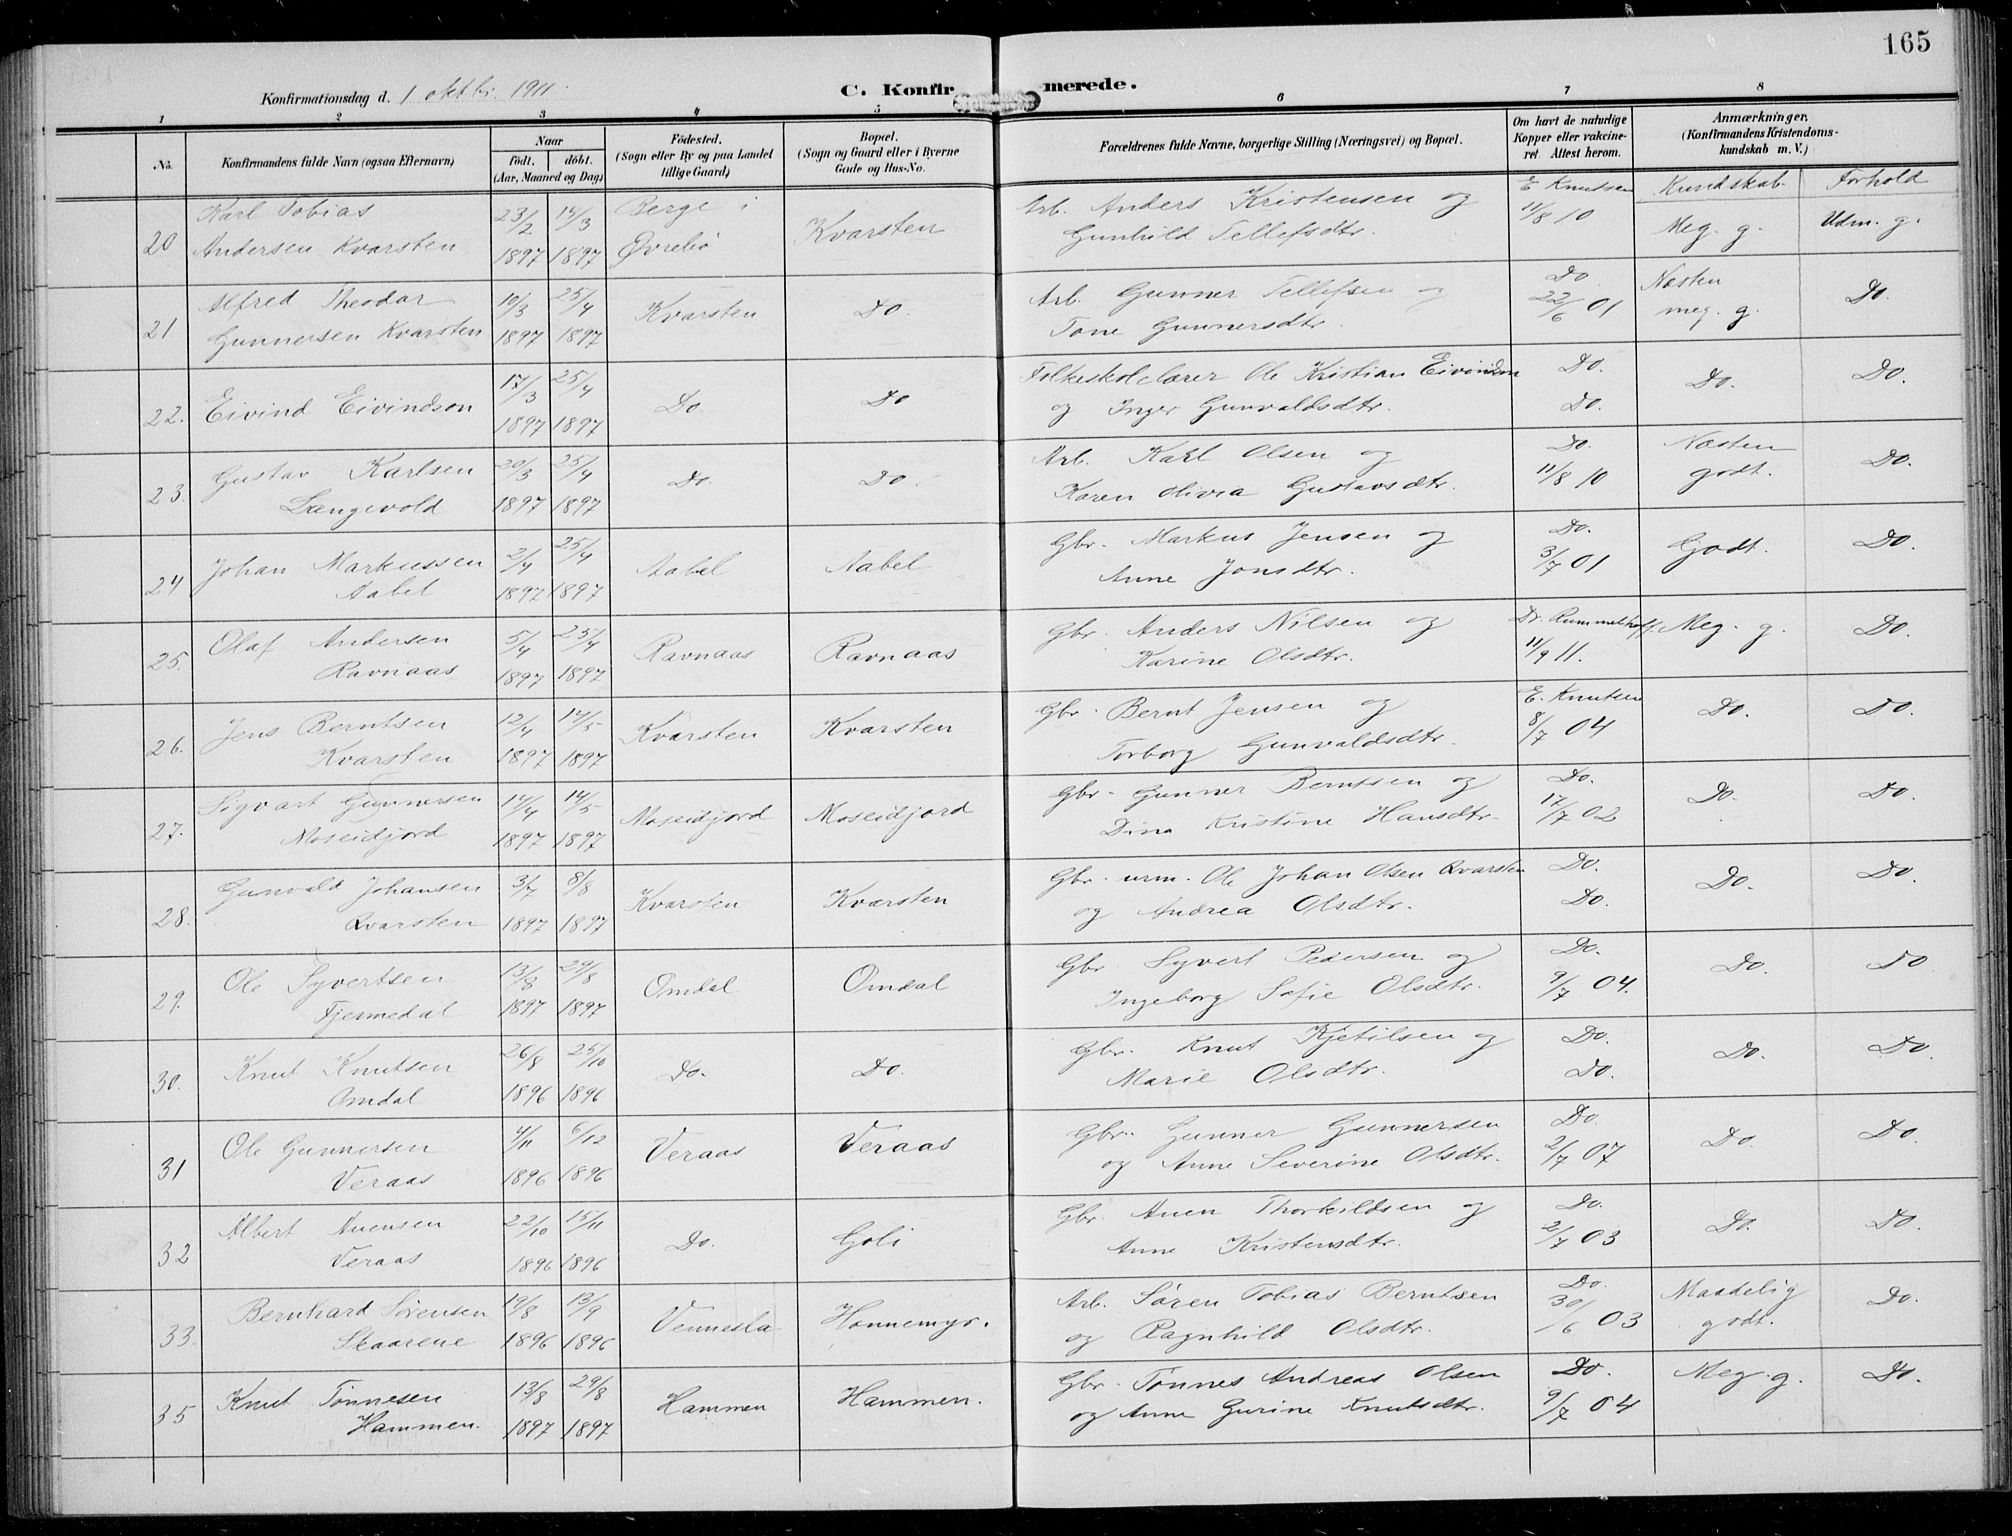 165
Konfirmationsdag d. 1 oktbr. 1911.
C. Konfirmerede.
1 2 3 4 5 6 7 8
No.
Konfirmandens fulde Navn (ogsaa Efternavn)
Naar
født. døbt.
(Aar, Maaned og Dag)
Födested.
(Sogn eller By og paa Landet
tillige Gaard)
Bopæl.
(Sogn og Gaard eller i Byerne
Gade og Hus-No.
Forældrenes fulde Navne, borgerlige Stilling (Næringsvei) og Bopæl.
Om havt de naturlige
Kopper eller vakcine-
ret. Attest herom.
Anmærkninger.
(Konfirmandens Kristendoms-
kundskab m. V.)
Kundskab. Forhold
20 Karl Tobias 23/2 14/3 Berge i Kvarsten Arb. Anders Kristensen og E Knutsen Meg. g. Udm. g.
Andersen Kvarsten 1897 1897 Øvrebø Gunhild Tellefsdtr. 11/8 10
21 Alfred Theodor 10/3 25/4 Kvarsten Do. Arb. Gunner Tellefsen og Do Næsten Do.
Gunnersen Kvarsten 1897 1897 Tone Gunnersdtr. 22/6 01 meg. g.
22. Eivind Eivindson 17/3 25/4 Do. Do Folkeskolelærer Ole Kristian Eivindsn Do. Do. Do.
1897 1897 og Inger Gunvaldsdtr. Do.
23. Gustav Karlsen 20/3 25/4 Do. Do. Arb. Karl Olsen og Do. Næsten Do.
Langevold 1897 1897 Karen Olivia Gustavsdtr. 11/8 10 godt.
24 Johan Markussen 2/4 25/4 Aabel Aabel Gbr. Markus Jensen og Do. Godt. Do.
Aabel 1897 1897 Anne Jonsdtr. 3/7 01
25. Olaf Andersen 5/4 25/4 Ravnaas Ravnaas Gbr. Anders Nilsen og Dr. Rummelhoff. Meg. g. Do.
Ravnaas 1897 1897 Karine Olsdtr. 11/9 11.
26. Jens Berntsen 12/4 14/5 Kvarsten Kvarsten Gbr. Bernt Jensen og E. Knutsen Do. Do.
Kvarsten 1897 1897 Torborg Gunvaldsdtr. 8/7 04
27. Sigvart Gunnersen 14/4 14/5 Moseidjord Moseidjord Gbr. Gunner Berntsen og Do. Do. Do.
Moseidjord 1897 1897 Dina Kristine Hansdtr. 17/7 02
28. Gunvald Johansen 3/7 8/8 Kvarsten Kvarsten Gbr. urm. Ole Johan Olsen Kvarsten Do. Do. Do.
Kvarsten 1897 1897 og Andrea Olsdtr. Do.
29. Ole Syvertsen 13/8 29/8 Omdal Omdal Gbr. Syvert Pedersen og Do. Do. Do
Fjermedal 1897 1897 Ingeborg Sofie Olsdtr. 9/7 04.
30. Knut Knutsen 26/8 25/10 Do. Do. Gbr. Knut Kjetilsen og Do. Do. Do.
Omdal 1896 1896 Marie Olsdtr. Do.
31 Ole Gunnersen 4/11 6/12 Veraas Veraas Gbr. Gunner Gunnersen Do. Do. Do.
Veraas 1896 1896 og Anne Severine Olsdtr. 2/7 07
32 Albert Auensen 22/10 15/11 Do. Goli Gbr. Auen Thorkildsen og Do. Do. Do.
Veraas 1896 1896 Anne Kristensdtr. 2/7 03
33. Bernhard Sørensen 19/8 13/9 Vennesla Honnemyr. Arb. Søren Tobias Berntsen Do. Maadelig Do.
Skaarene 1896 1896 og Ragnhild Olsdtr. 30/6 03 godt.
35 Knut Tønnesen 13/8 29/8 Hammen Hammen. Gbr. Tønnes Andreas Olsen Do. Meg. g. Do.
Hammen. 1897 1897 og Anne Gurine Knutsdtr. 9/7 04